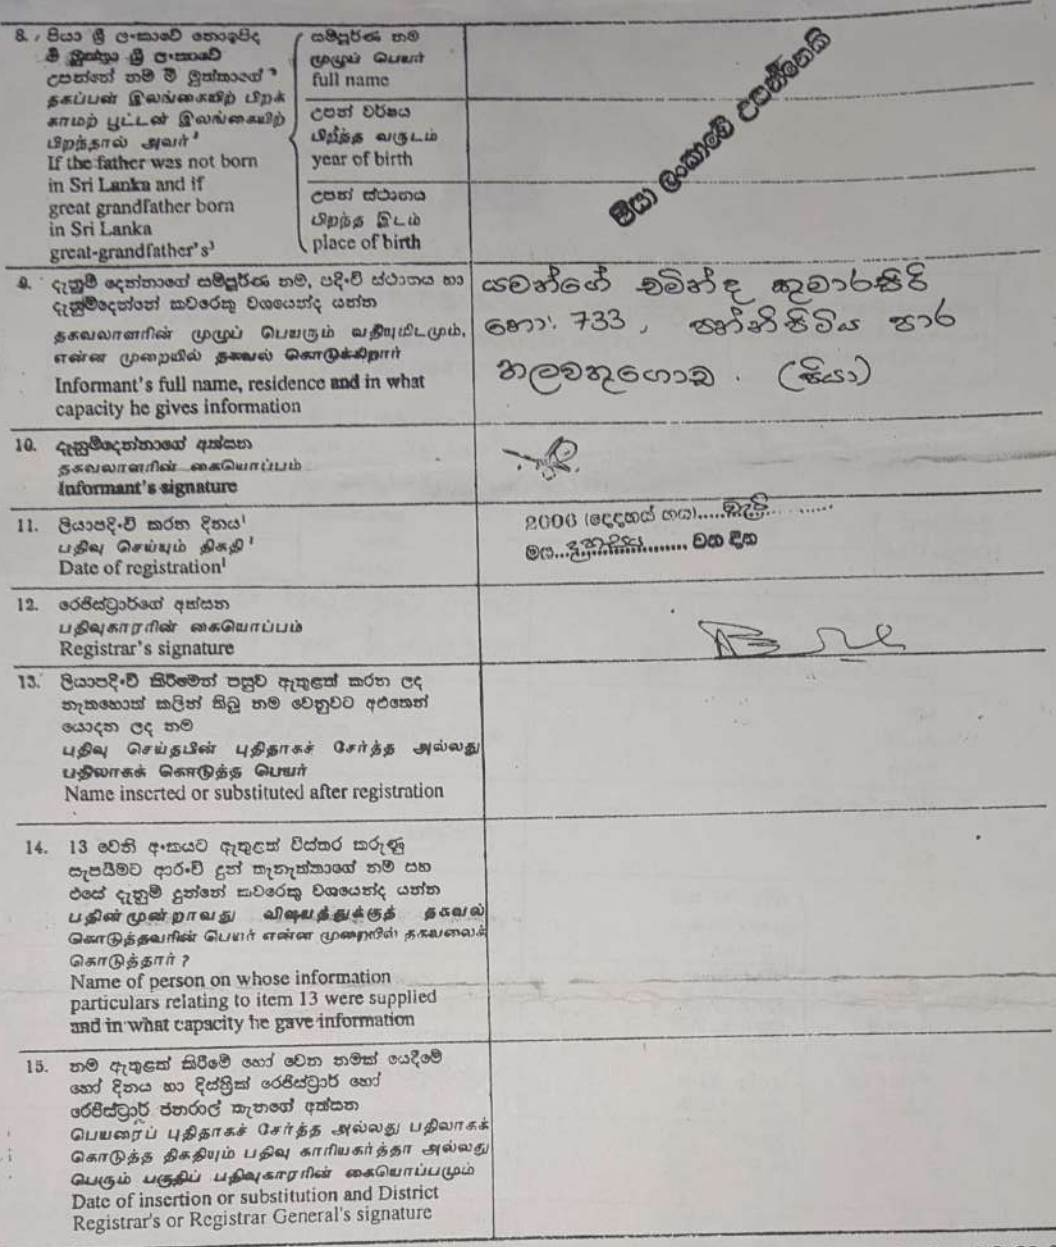 8. පියා ශ්‍රී ලංකාවේ නොඉපිද
මී මුත්තා ශ්‍රී ලංකාවේ
උපන්නේ නම් මී මුත්තාගේ ³
தகப்பன் இலங்கையிற் பிறக்
காமற் பூட்டன் இலங்கையிற்
பிறந்தால் அவர் ³
If the father was not born
in Sri Lanka and if
great grandfather born
in Sri Lanka
great-grandfather's³
සම්පූර්ණ නම
முழுப் பெயர்
full name
උපන් වර්ෂය
பிறந்த வருடம்
year of birth
උපන් ස්ථානය
பிறந்த இடம்
place of birth
පියා ලංකාවේ උපන්නෙකි
9. දැනුම් දෙන්නාගේ සම්පූර්ණ නම, පදිංචි ස්ථානය හා
දැනුම්දෙන්නේ කවරෙකු වශයෙන්ද යන්න
தகவலாளரின் முழுப் பெயரும் வதியுமிடமும்,
என்ன முறையில் தகவல் கொடுக்கிறார்
Informant's full name, residence and in what
capacity he gives information
යවන්ගේ චමින්ද කුමාරසිරි
නො: 733, පන්නිපිටිය පාර
තලවතුගොඩ. (පියා)
10. දැනුම්දෙන්නාගේ අත්සන
தகவலாளரின் கையொப்பம்
Informant's signature
11. ලියාපදිංචි කරන දිනය¹
பதிவு செய்யும் திகதி ¹
Date of registration¹
2006 (දෙදහස් හය).....මැයි.........
මස...දහඅටවන......... වන දින
12. රෙජිස්ට්‍රාර්ගේ අත්සන
பதிவுகாரரின் கையொப்பம்
Registrar's signature
13. ලියාපදිංචි කිරීමෙන් පසුව ඇතුළත් කරන ලද
නැතහොත් කලින් තිබූ නම වෙනුවට අළුතෙන්
යොදන ලද නම
புதிவு செய்தபின் புதிதாகச் சேர்த்த அல்லது
பதிலாகக் கொடுத்த பெயர்
Name inserted or substituted after registration
14. 13 වෙනි අංකයට ඇතුළත් විස්තර කරුණු
සැපයීමට ආරංචි දුන් තැනැත්තාගේ නම සහ
එසේ දැනුම් දුන්නේ කවරෙකු වශයෙන්ද යන්න
பதின்மூன்றாவது விஷயத்துக்குத் தகவல்
கொடுத்தவரின் பெயர் என்ன முறையில் தகவலைக்
கொடுத்தார் ?
Name of person on whose information
particulars relating to item 13 were supplied
and in what capacity he gave information
15. නම ඇතුළත් කිරීමේ හෝ වෙන නමක් යෙදීමේ
හෝ දිනය හා දිස්ත්‍රික් රෙජිස්ට්‍රාර් හෝ
රෙජිස්ට්‍රාර් ජනරාල් තැනගේ අත්සන
பெயரைப் புதிதாகச் சேர்த்த அல்லது பதிலாகக்
கொடுத்த திகதியும் பதிவு காரியகர்த்தா அல்லது
பெரும் பகுதிப் பதிவுகாரரின் கையொப்பமும்
Date of insertion or substitution and District
Registrar's or Registrar General's signature